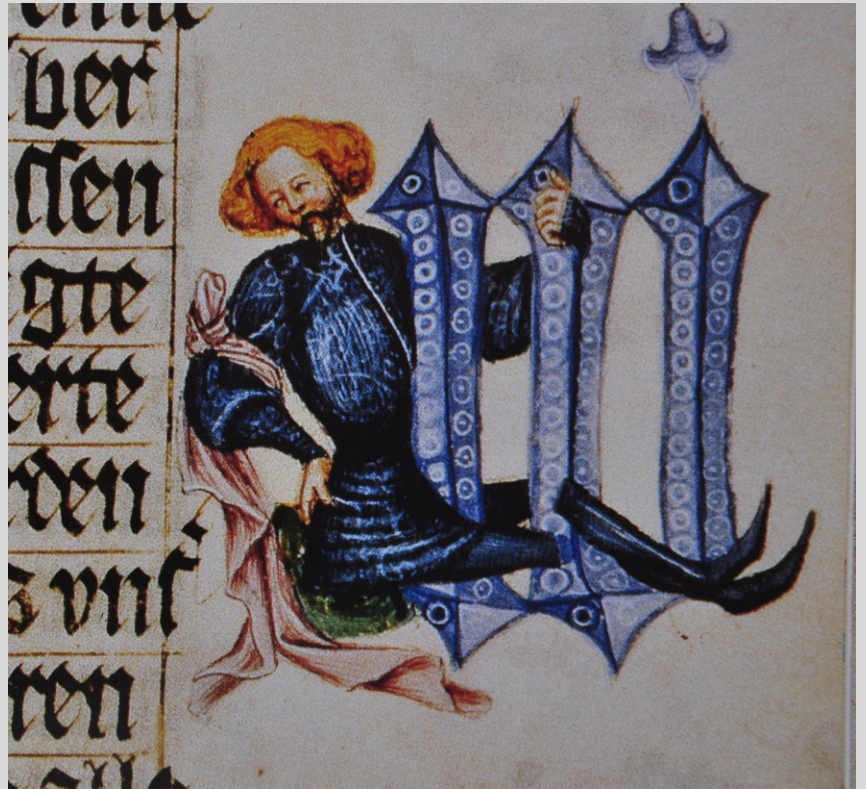 ber
ſſen
gte
erte
rden
s vnſ
ren
alle